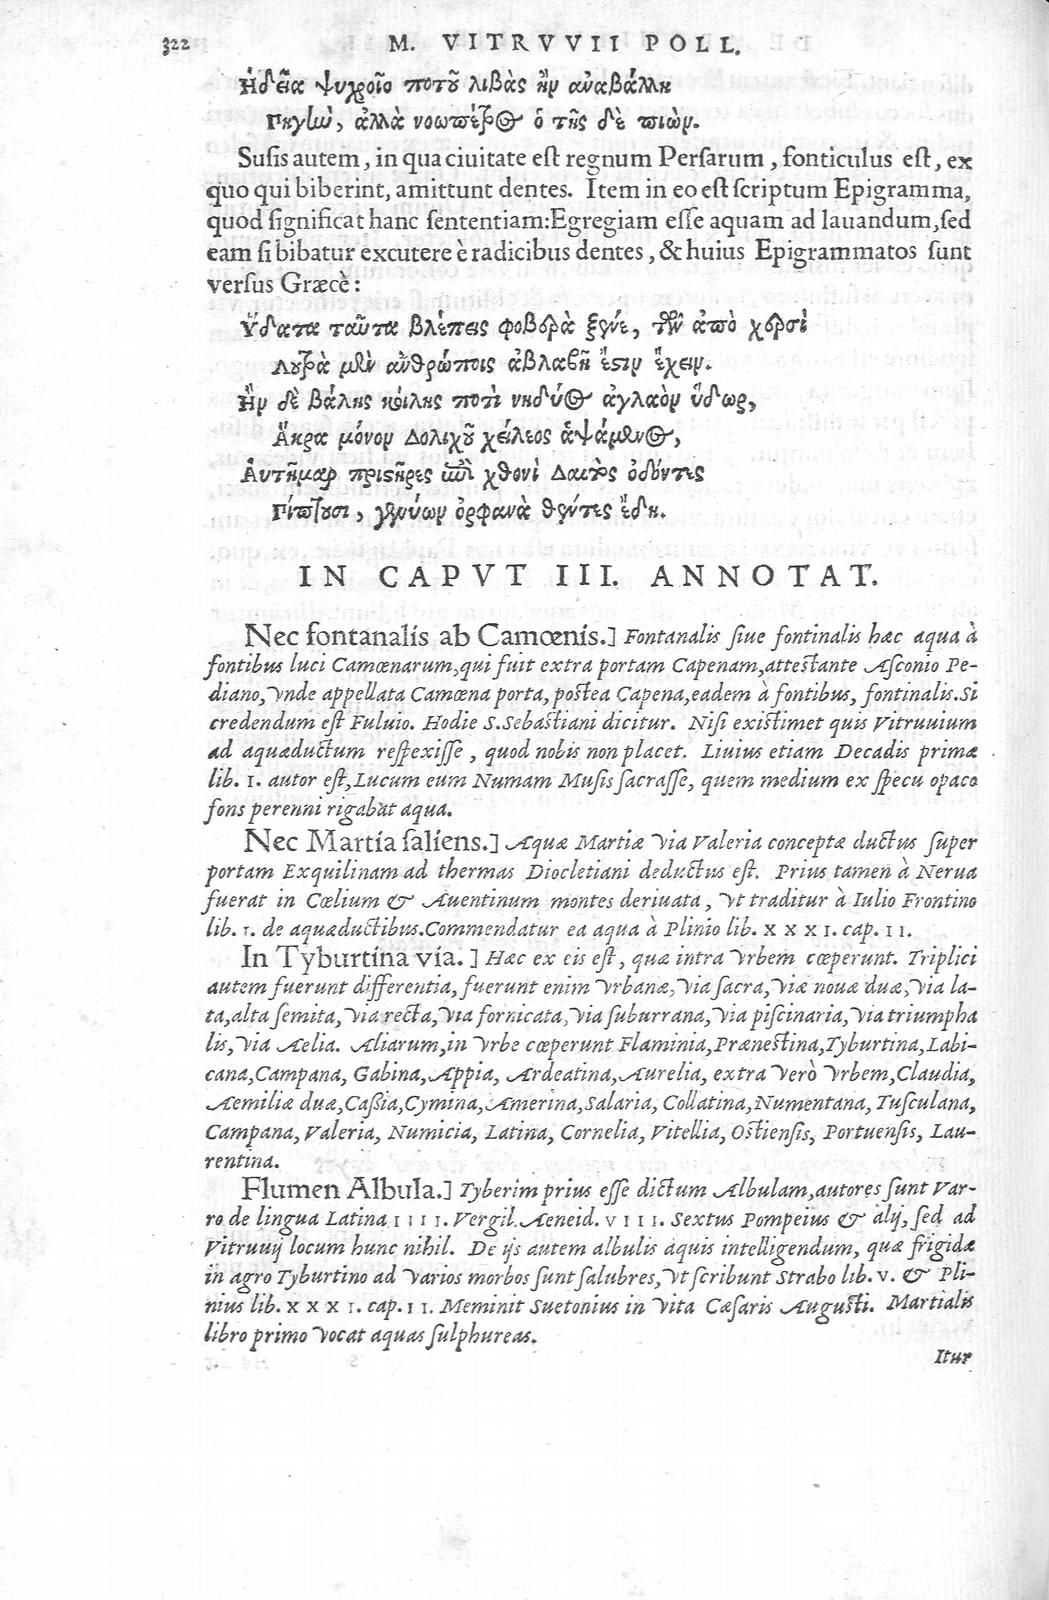 322 M. VITRVVII POLL.
Ἡδεῖα ψυχροῖο ποτοῦ λιβὰς ἣν ἀναβάλλει
Πηγὴ, ἀλλὰ νοωπέτρος ὁ τῆς δὲ πιών.
Susis autem, in qua ciuitate est regnum Persarum, fonticulus est, ex
quo qui biberint, amittunt dentes. Item in eo est scriptum Epigramma,
quod significat hanc sententiam: Egregiam esse aquam ad lauandum, sed
eam si bibatur excutere è radicibus dentes, & huius Epigrammatos sunt
versus Græcè:
Ὕδατα ταῦτα βλέπεις φοβερὰ ξένε, τῶν ἀπὸ χερσὶ
Λουτρὰ μὲν ἀνθρώποις ἀβλαβῆ ἔστιν ἔχειν.
Ἢν δὲ βάλῃς κοίλης ποτὶ νηδύος ἀγλαὸν ὕδωρ,
Ἄκρα μόνον δολιχοῦ χείλεος ἁψάμενος,
Αὐτῆμαρ πριστῆρες ἐπὶ χθονὶ δαιτὸς ὀδόντες
Πίπτουσι, γενύων ὀρφανὰ θέντες ἕδη.
IN CAPVT III. ANNOTAT.
Nec fontanalis ab Camœnis.] Fontanalis siue fontinalis hæc aqua à
fontibus luci Camœnarum, qui fuit extra portam Capenam, attestante Asconio Pe-
diano, vnde appellata Camœna porta, postea Capena, eadem à fontibus, fontinalis. Si
credendum est Fuluio. Hodie S. Sebastiani dicitur. Nisi existimet quis Vitruuium
ad aquæductum respexisse, quod nobis non placet. Liuius etiam Decadis primæ
lib. 1. autor est, Lucum eum Numam Musis sacrasse, quem medium ex specu opaco
fons perenni rigabat aqua.
Nec Martia saliens.] Aquæ Martiæ via Valeria conceptæ ductus super
portam Exquilinam ad thermas Diocletiani deductus est. Prius tamen à Nerua
fuerat in Cœlium & Auentinum montes deriuata, vt traditur à Iulio Frontino
lib. 1. de aquæductibus. Commendatur ea aqua à Plinio lib. XXXI. cap. II.
In Tyburtina via.] Hæc ex eis est, quæ intra vrbem cœperunt. Triplici
autem fuerunt differentia, fuerunt enim vrbanæ, via sacra, viæ nouæ duæ, via la-
ta, alta semita, via recta, via fornicata, via suburrana, via piscinaria, via triumpha
lis, via Aelia. Aliarum, in vrbe cœperunt Flaminia, Prænestina, Tyburtina, Labi-
cana, Campana, Gabina, Appia, Ardeatina, Aurelia, extra verò vrbem, Claudia,
Aemiliæ duæ, Caßia, Cymina, Amerina, Salaria, Collatina, Numentana, Tusculana,
Campana, Valeria, Numicia, Latina, Cornelia, Vitellia, Ostiensis, Portuensis, Lau-
rentina.
Flumen Albula.] Tyberim prius esse dictum Albulam, autores sunt Var-
ro de lingua Latina IIII. Vergil. Aeneid. VIII. Sextus Pompeius & alij, sed ad
Vitruuij locum hunc nihil. De ijs autem albulis aquis intelligendum, quæ frigidæ
in agro Tyburtino ad varios morbos sunt salubres, vt scribunt Strabo lib. V. & Pli-
nius lib. XXXI. cap. II. Meminit Suetonius in vita Cæsaris Augusti. Martialis
libro primo vocat aquas sulphureas.
Itur